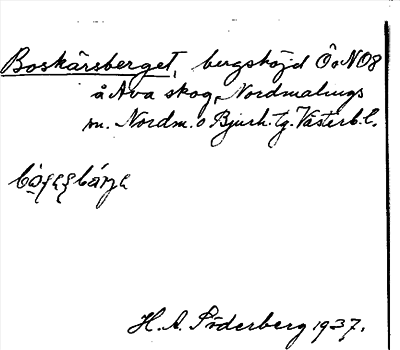 Boskärsberget, bergshöjd ÖoNO8
å Ava skog, Nordmalings
m. Nordm. o Bjurh. tg. Västerb. l.
H. A. Söderberg 1937.